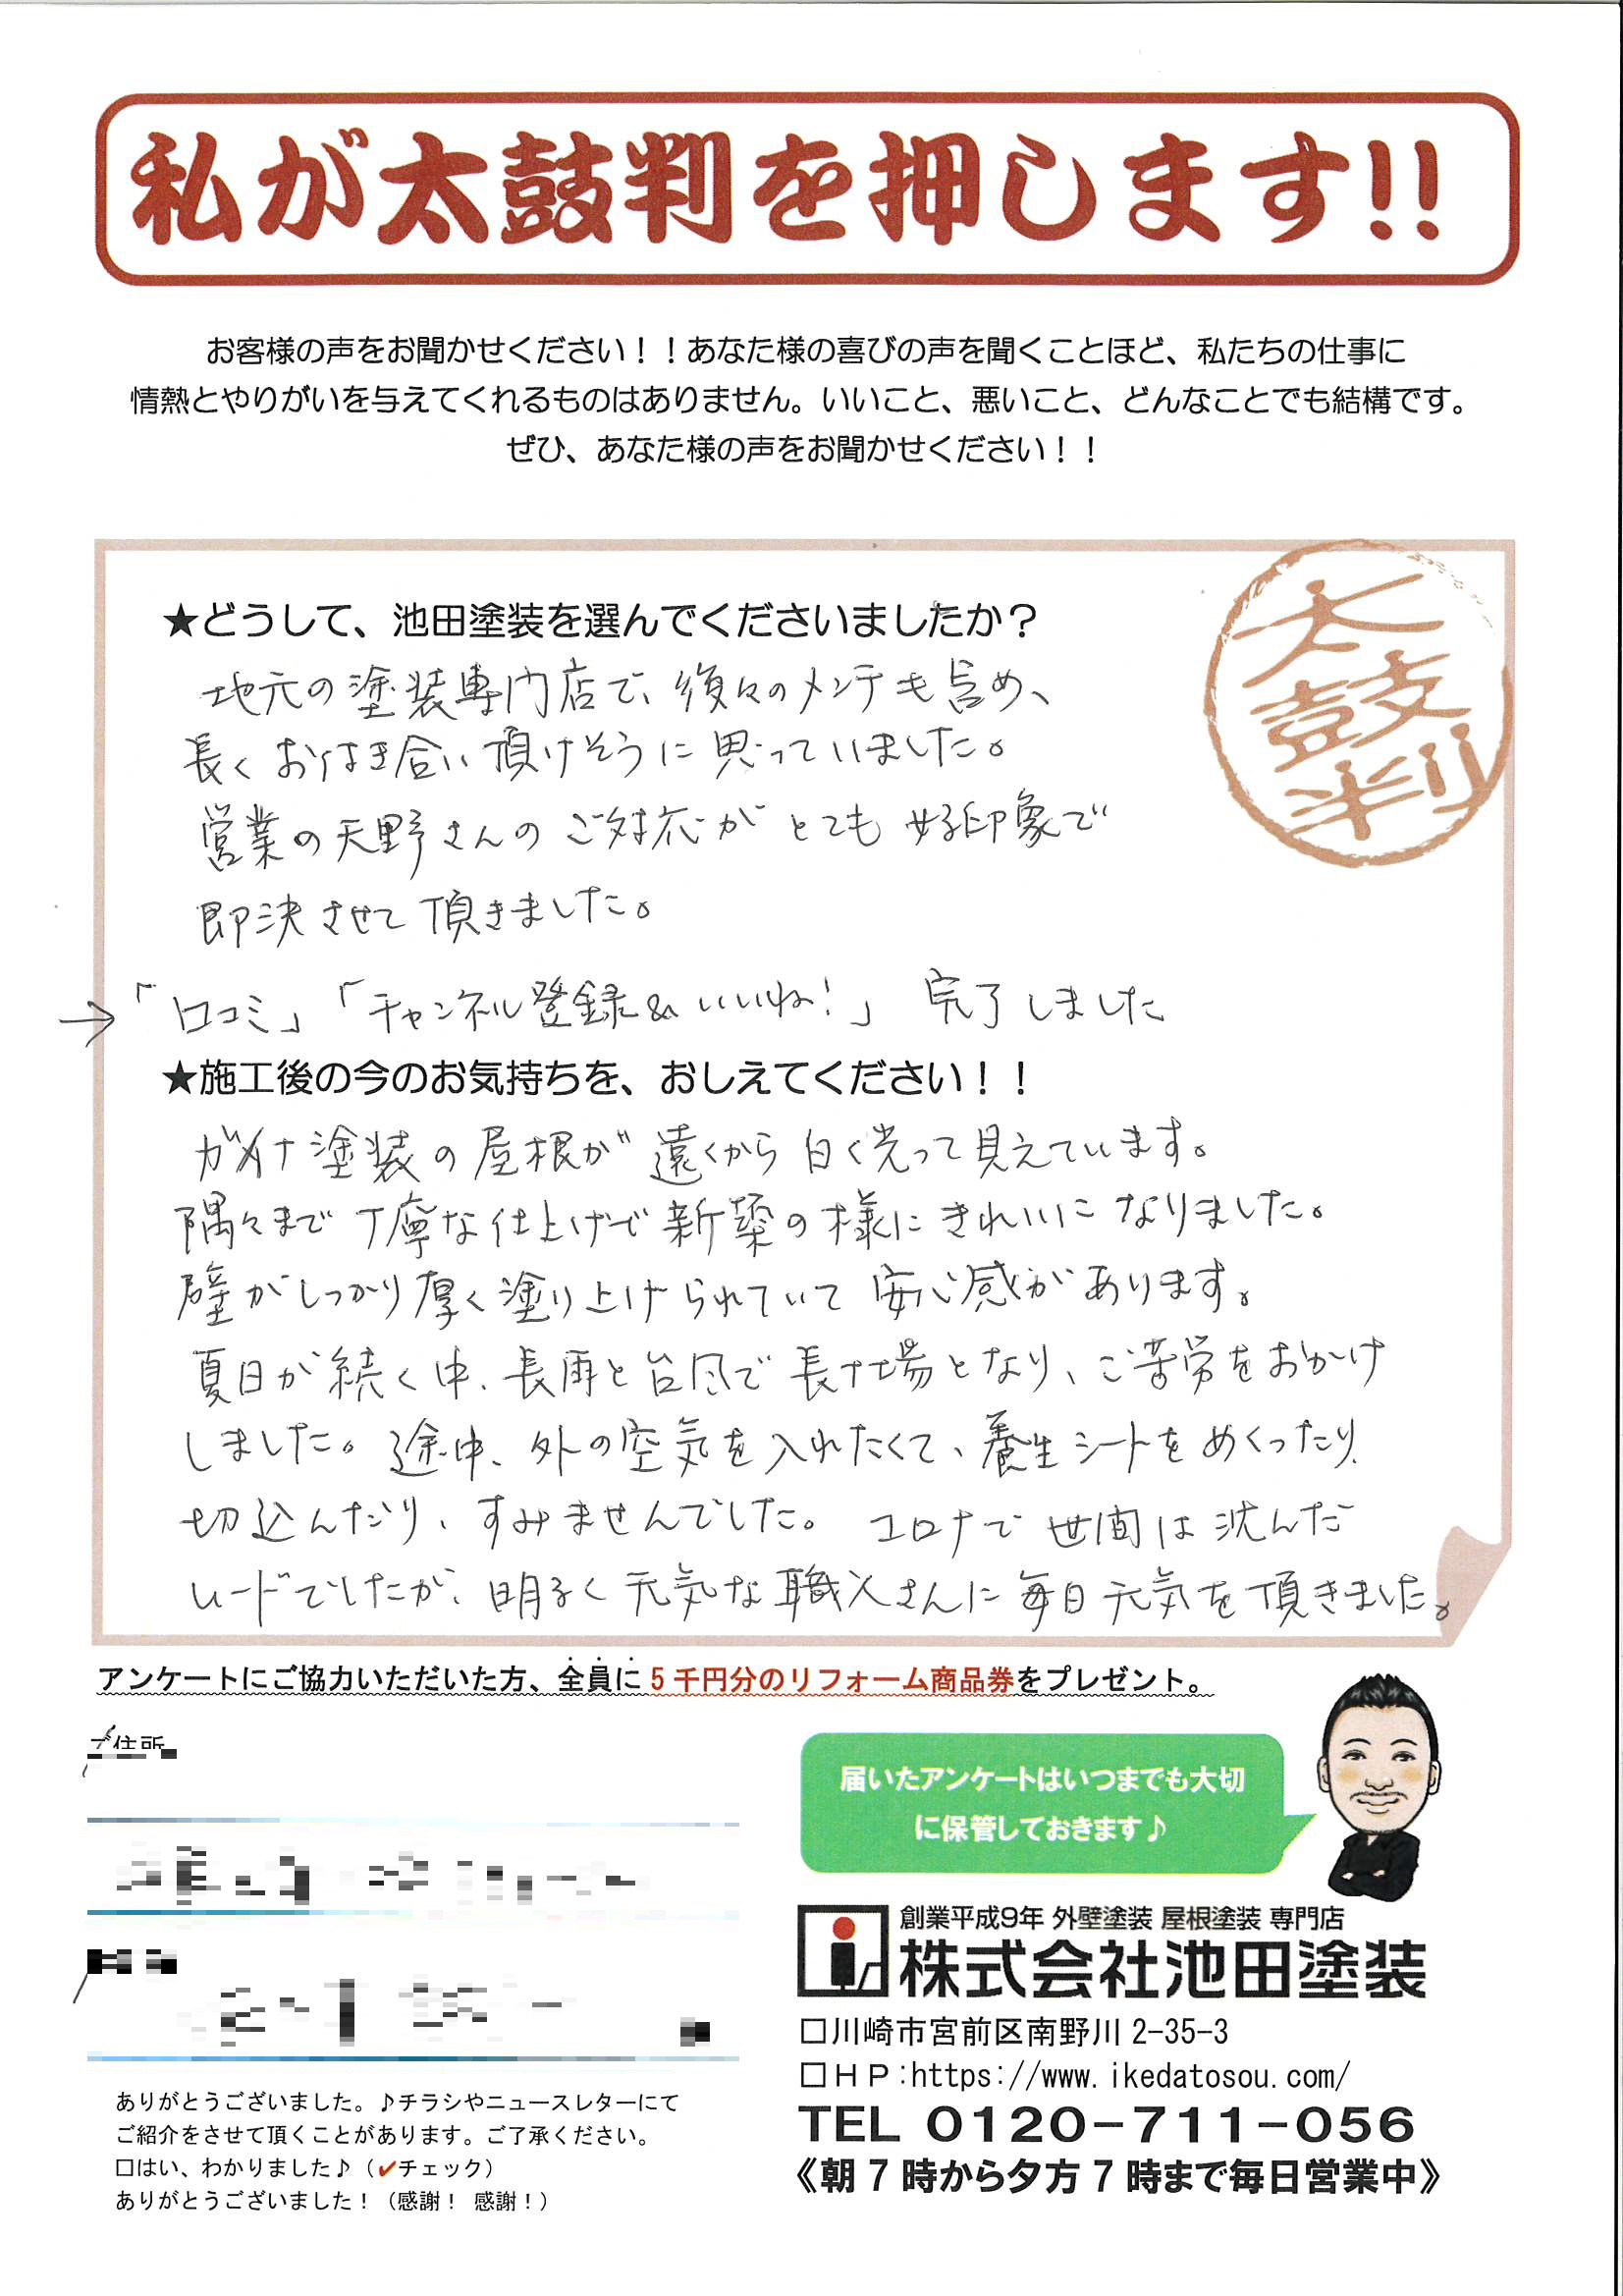 私が太鼓判を押します!!
お客様の声をお聞かせください！！あなた様の喜びの声を聞くことほど、私たちの仕事に
情熱とやりがいを与えてくれるものはありません。いいこと、悪いこと、どんなことでも結構です。
ぜひ、あなた様の声をお聞かせください！！
太鼓判
★どうして、池田塗装を選んでくださいましたか？
地元の塗装専門店で、後々のメンテも含め、
長くお付き合い頂けそうに思っていました。
営業の天野さんのご対応がとても好印象で
即決させて頂きました。
→「口コミ」「チャンネル登録&いいね!」完了しました
★施工後の今のお気持ちを、おしえてください！！
ガイナ塗装の屋根が遠くから白く光って見えています。
隅々まで丁寧な仕上げで新築の様にきれいになりました。
壁がしっかり厚く塗り上げられていて安心感があります。
夏日が続く中、長雨と台風で長丁場となり、ご苦労をおかけ
しました。途中、外の空気を入れたくて、養生シートをめくったり
切込んだり、すみませんでした。コロナで世間は沈んだ
ムードでしたが、明るく元気な職人さんに毎日元気を頂きました。
アンケートにご協力いただいた方、全員に5千円分のリフォーム商品券をプレゼント。
ご住所
届いたアンケートはいつまでも大切
に保管しておきます♪
創業平成9年 外壁塗装 屋根塗装 専門店
株式会社池田塗装
□川崎市宮前区南野川2-35-3
□ＨＰ:https://www.ikedatosou.com/
TEL 0120-711-056
《朝7時から夕方7時まで毎日営業中》
ありがとうございました。♪チラシやニュースレターにて
ご紹介をさせて頂くことがあります。ご了承ください。
□はい、わかりました♪（✔チェック）
ありがとうございました！（感謝！ 感謝！）